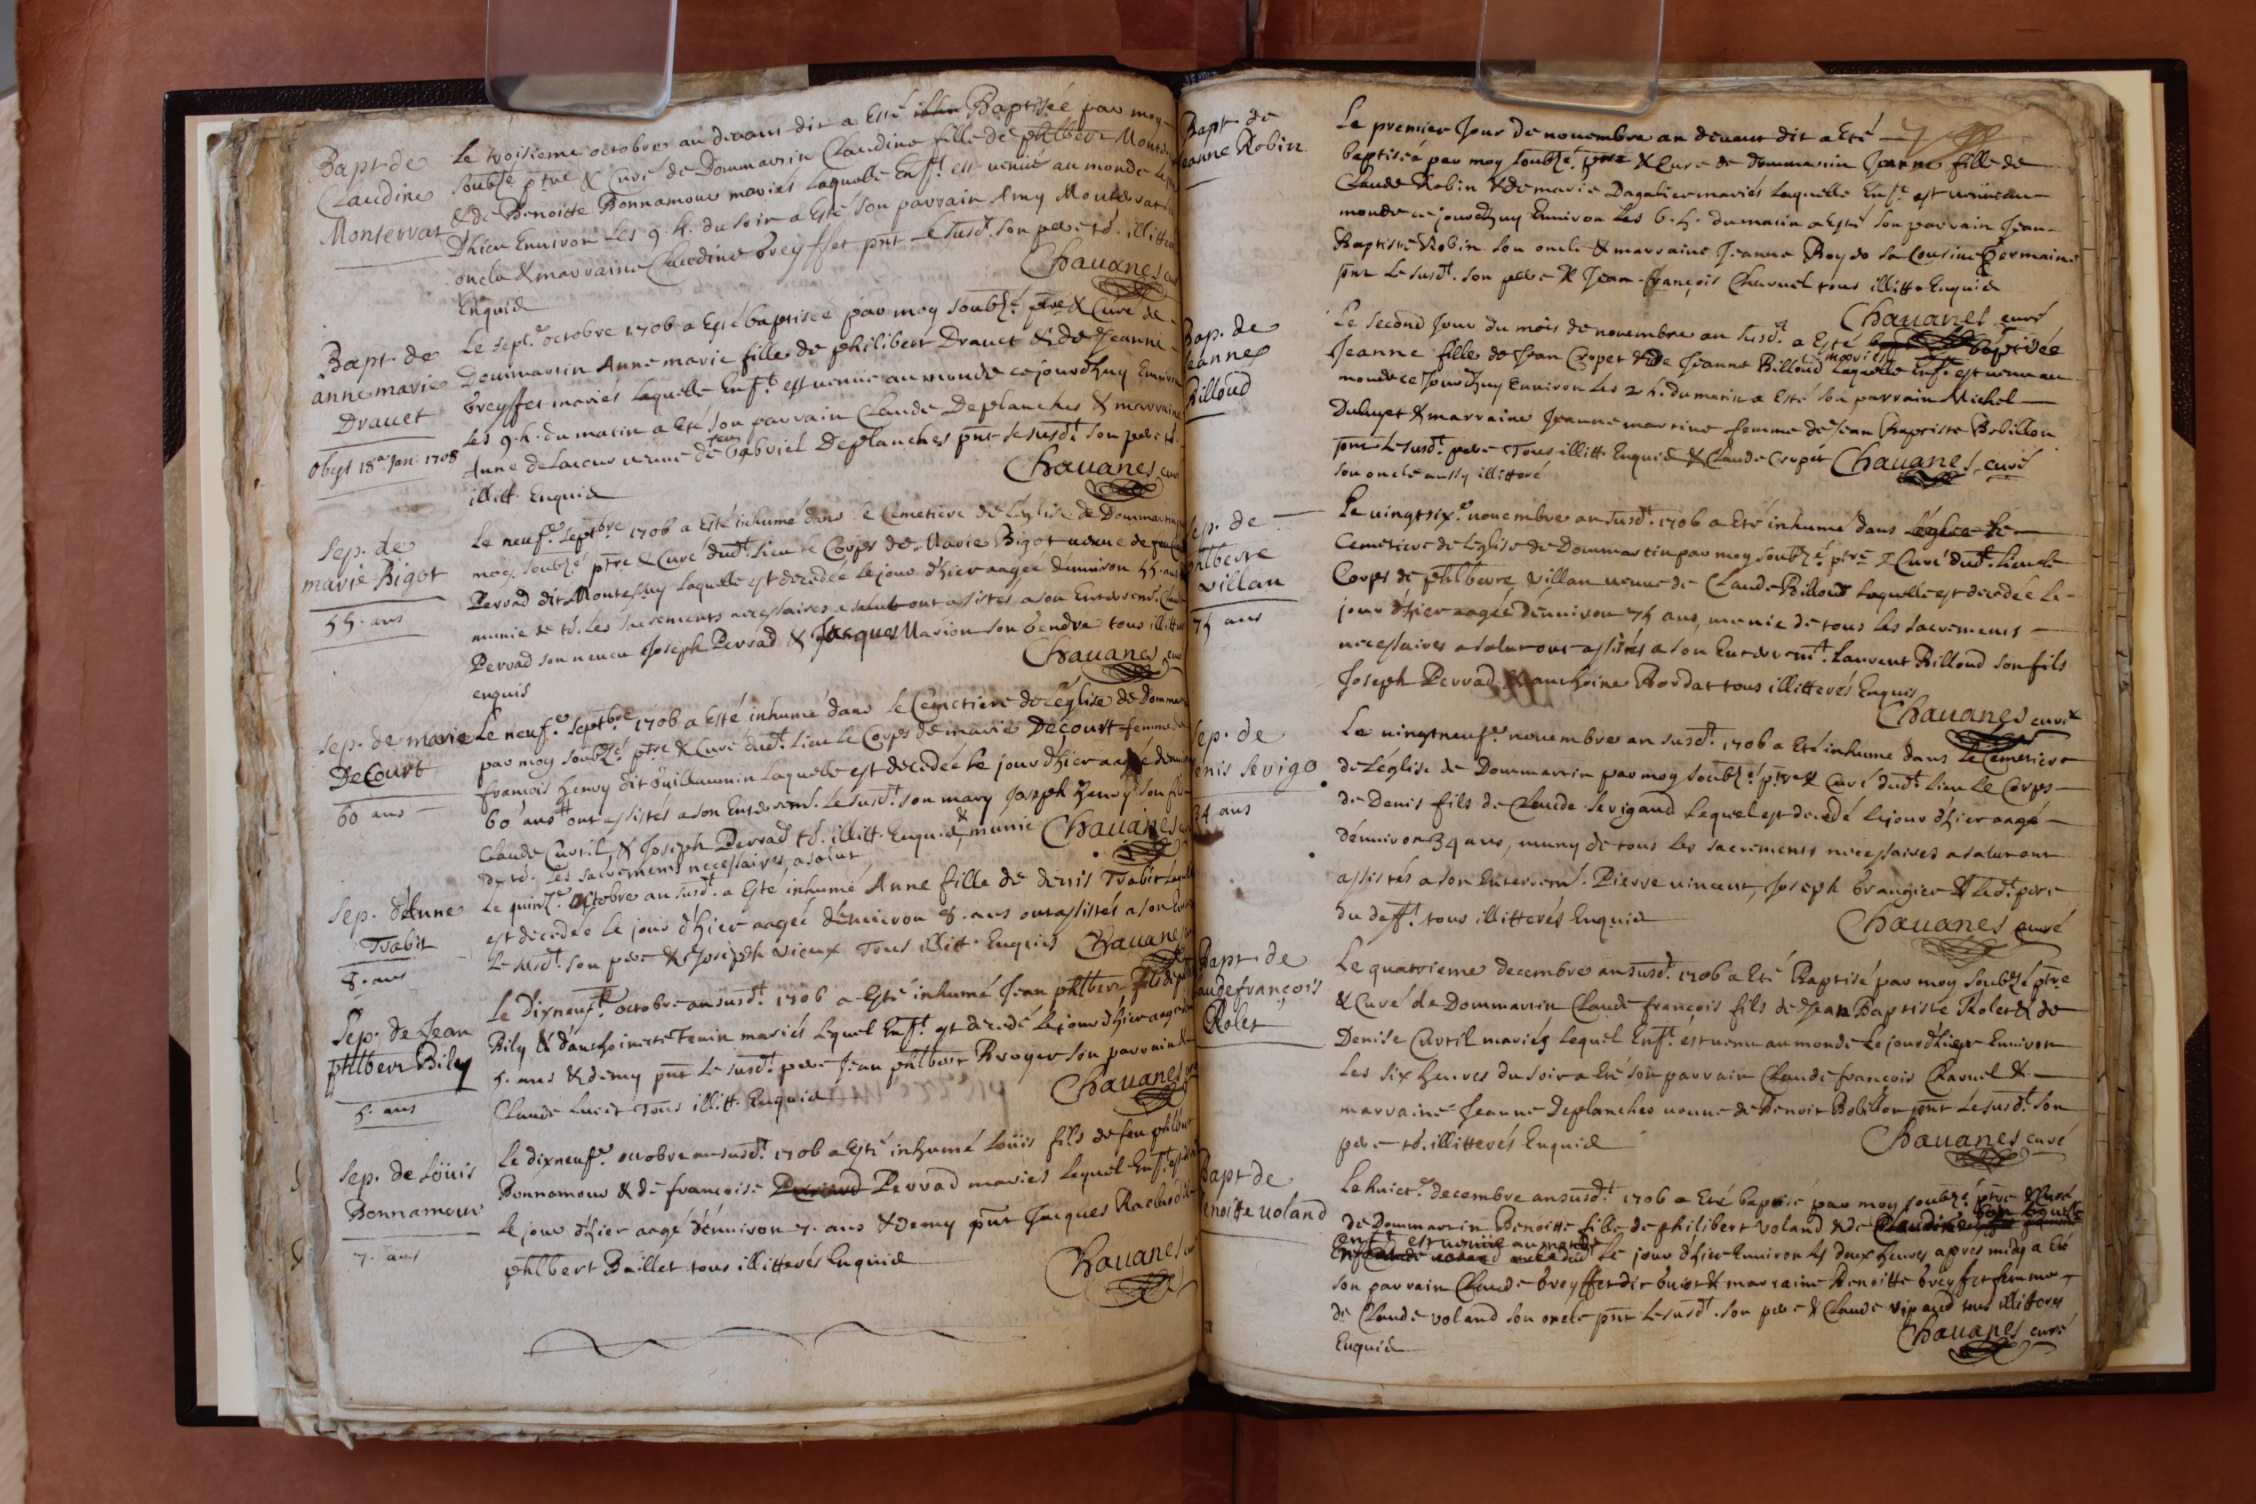 Bapt de
Claudine
Monservat
Le troisieme octobre an devant dit a Esté Baptisée par moy
soubzé ptre & Curé de Dommartin Claudine fille de phlbert
& de Benoitte Bonnamour mariés laquelle Enft est venue au monde
D'hier Environ les 9. h. du soir a Esté son parrain Amy
oncle & marraine Claudine breyffet pnt le susdt son pere td. illitt
Enquid
Chauanes
Bapt. de
anne marie
Drauet
obyt 18a Jan. 1708
Le sept.e octobre 1706 a Esté baptisée par moy soubzé ptre & Curé de
Dommartin Anne marie fille de philibert Drauet & de Jeanne
breyffet mariés laquelle Enft est venue au monde ce jourdhuy Environ
les 9. h. du matin a Eté son parrain Claude Deplanches & marraine
Anne veuve de feu Gabriel Deplanches pnt le susdt son pere td.
illitt. Enquid
Chauanes curé
Sep. de
marie Bigot
55. ans
Le neuf.e Septbre 1706 a Esté inhumé dans le Cemetiere de l'Eglise de
moy soubzé ptre & Curé dudt lieu le Corps de Marie Bigot veuve de
Perrad dit Montessuy laquelle est decedée le jour d'hier aagée d'environ 55. ans
munie de td. les sacrements necessaires a salut ont assistés a son Enterremt
Perrad son neveu Joseph Perrad & Jacques Marion son Gendre tous
enquis
Chauanes curé
Sep. de marie
DeCourt
60 ans
Le neuf.e Septbre 1706 a Esté inhumé dans le Cemetiere de l'Eglise de
par moy soubzé ptre & Curé dudt lieu le Corps de marie Decourt femme de
francois henry dit Guillaumin laquelle est decedée le jour d'hier aagée
60 ans ont assistés a son Enterremt le susdt son mary Joseph henry son fils
Claude Curtil & Joseph Perrad td. illitt. Enquid & munie
de td. les sacrements necessaires a salut
Chauanes
Sep. d'Anne
Trabit
8. ans
Le quinze octobre an susdt a Esté inhumé Anne fille de denis Trabit
est decedée le jour d'hier aagée d'environ 8. ans ont assistés a son
le susdt son pere & Joseph vieux Tous illitt. Enquis
Chauanes
Sep. de Jean
phlbert Bily
5. ans
Le dixneuf.e octobre an susdt 1706 a Esté inhumé Jean phlbert fils de
Bily & d'anthoinette Tenin mariés lequel Enft est decedé le jour d'hier aagé
5. ans & demy pnt le susdt pere Jean phlbert Broyer son parrain &
Claude Tous illitt. Enquid
Chauanes
Sep. de Loüis
Bonnamour
7. ans
Le dixneuf.e octobre an susdt 1706 a Esté inhumé Loüis fils de feu
Bonnamour & de francoise Perrad mariés lequel Enft
le jour d'hier aagé d'environ 7. ans & demy pnt Jacques
phlbert Baillet tous illitterés Enquid
Chauanes
Bapt de
Jeanne Robin
Le premier Jour de novembre an devant dit a Eté
baptisée par moy soubzé ptre & Curé de dommartin Jeanne fille de
Claude Robin & de marie mariés laquelle Enft est venue au
monde ce jourdhuy Environ les 6. h. du matin a Esté son parrain Jean
Baptiste Robin son oncle & marraine Jeanne Roydo sa Cousine Germaine
pnt le susdt son pere & Jean-françois Charvel tous illitt. Enquid
Chauanes curé
Bap. de
Jeanne
Billoud
Le second Jour du mois de novembre an susdt a Esté baptisée
Jeanne fille de Jean Cropet & de Jeanne Billoud mariés laquelle Enft est venu au
monde ce Jourdhuy Environ les 2 h. du matin a Esté son parrain Michel
& marraine Jeanne martine femme de Jean Baptiste Bobillon
pnt le susdt pere Tous illitt. Enquid & Claude Cropet
son oncle aussy illitteré
Chauanes curé
Sep. de
phlberte
villan
75 ans
Le vingtsix.e novembre an susdt 1706 a Eté inhumé dans l'eglise de
Cemetiere de l'Eglise de Dommartin par moy soubzé ptre & Curé dudt lieu le
Corps de phlberte villan veuve de Claude Billoud laquelle est decedée le
jour d'hier aagée d'environ 75 ans, munie de tous les sacrements
necessaires a salut ont assistés a son Enterremt Laurent Billoud son fils
Joseph Perrad & anthoine Bordat tous illitterés Enquis
Chauanes curé
Sep. de
denis Sevigo
34 ans
Le vingtneuf.e novembre an susdt 1706 a Eté inhumé dans le Cemetiere
de l'Eglise de Dommartin par moy soubzé ptre & Curé dudt lieu le Corps
de Denis fils de Claude Sevigaud lequel est decedé le jour d'hier aagé
d'environ 34 ans, muny de tous les sacrements necessaires a salut ont
assistés a son Enterremt Pierre vincent, Joseph brangier & ledt pere
du defft tous illitterés Enquid
Chauanes curé
Bapt de
Claude françois
Rolet
Le quatrieme decembre an susdt 1706 a Eté Baptisé par moy soubzé ptre
& Curé de Dommartin Claude françois fils de Jean Baptiste Rolet & de
Denise Curtil mariés lequel Enft est venu au monde le jour d'hier Environ
les six heures du soir a Eté son parrain Claude françois Charvel &
marraine Jeanne Deplanches veuve de Benoit Bobillon pnt le susdt son
pere td. illitterés Enquid
Chauanes curé
Bapt de
Benoitte voland
Le huict.e decembre an susdt 1706 a Eté baptisé par moy soubzé ptre & Curé
de Dommartin Benoitte fille de philibert voland & de Claudine laquelle
enft est venue au monde le jour d'hier Environ les deux heures apres midy a Eté
son parrain Claude breyffet dit buiot & marraine Benoitte breyffet femme
de Claude voland son oncle pnt le susdt son pere & Claude vipaud tous illitteres
Enquid
Chauanes curé